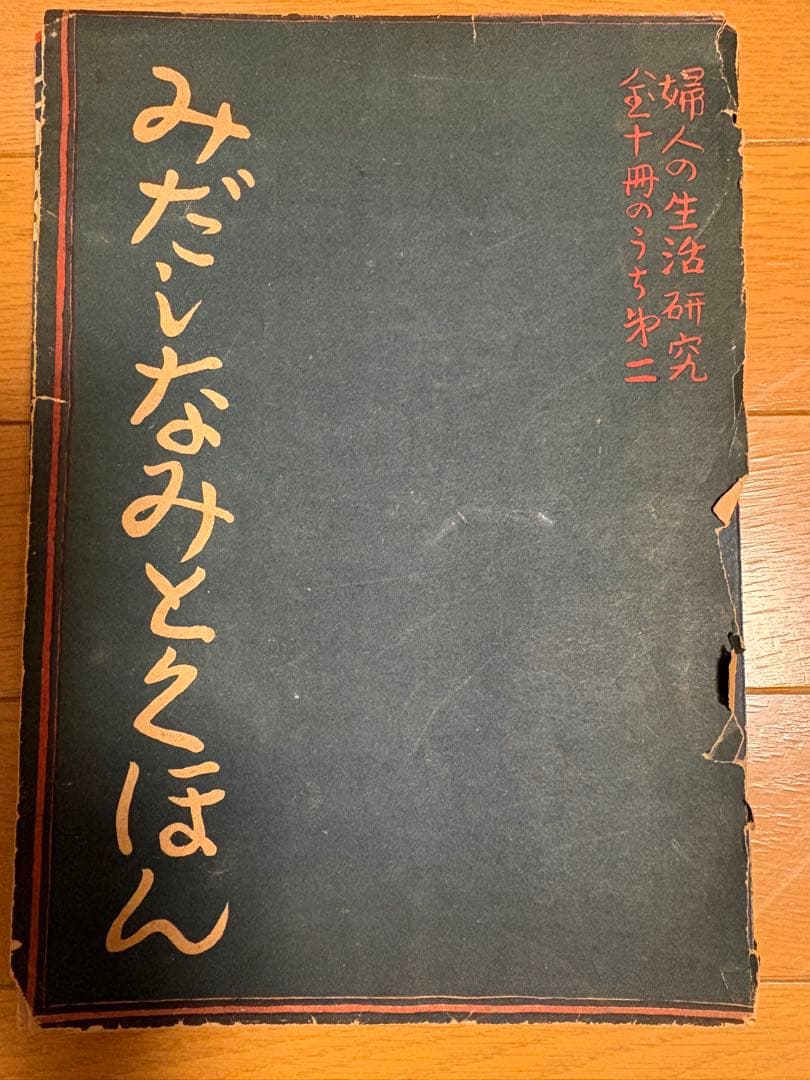 婦人の生活研究
全十冊のうち第二
みだしなみとくほん